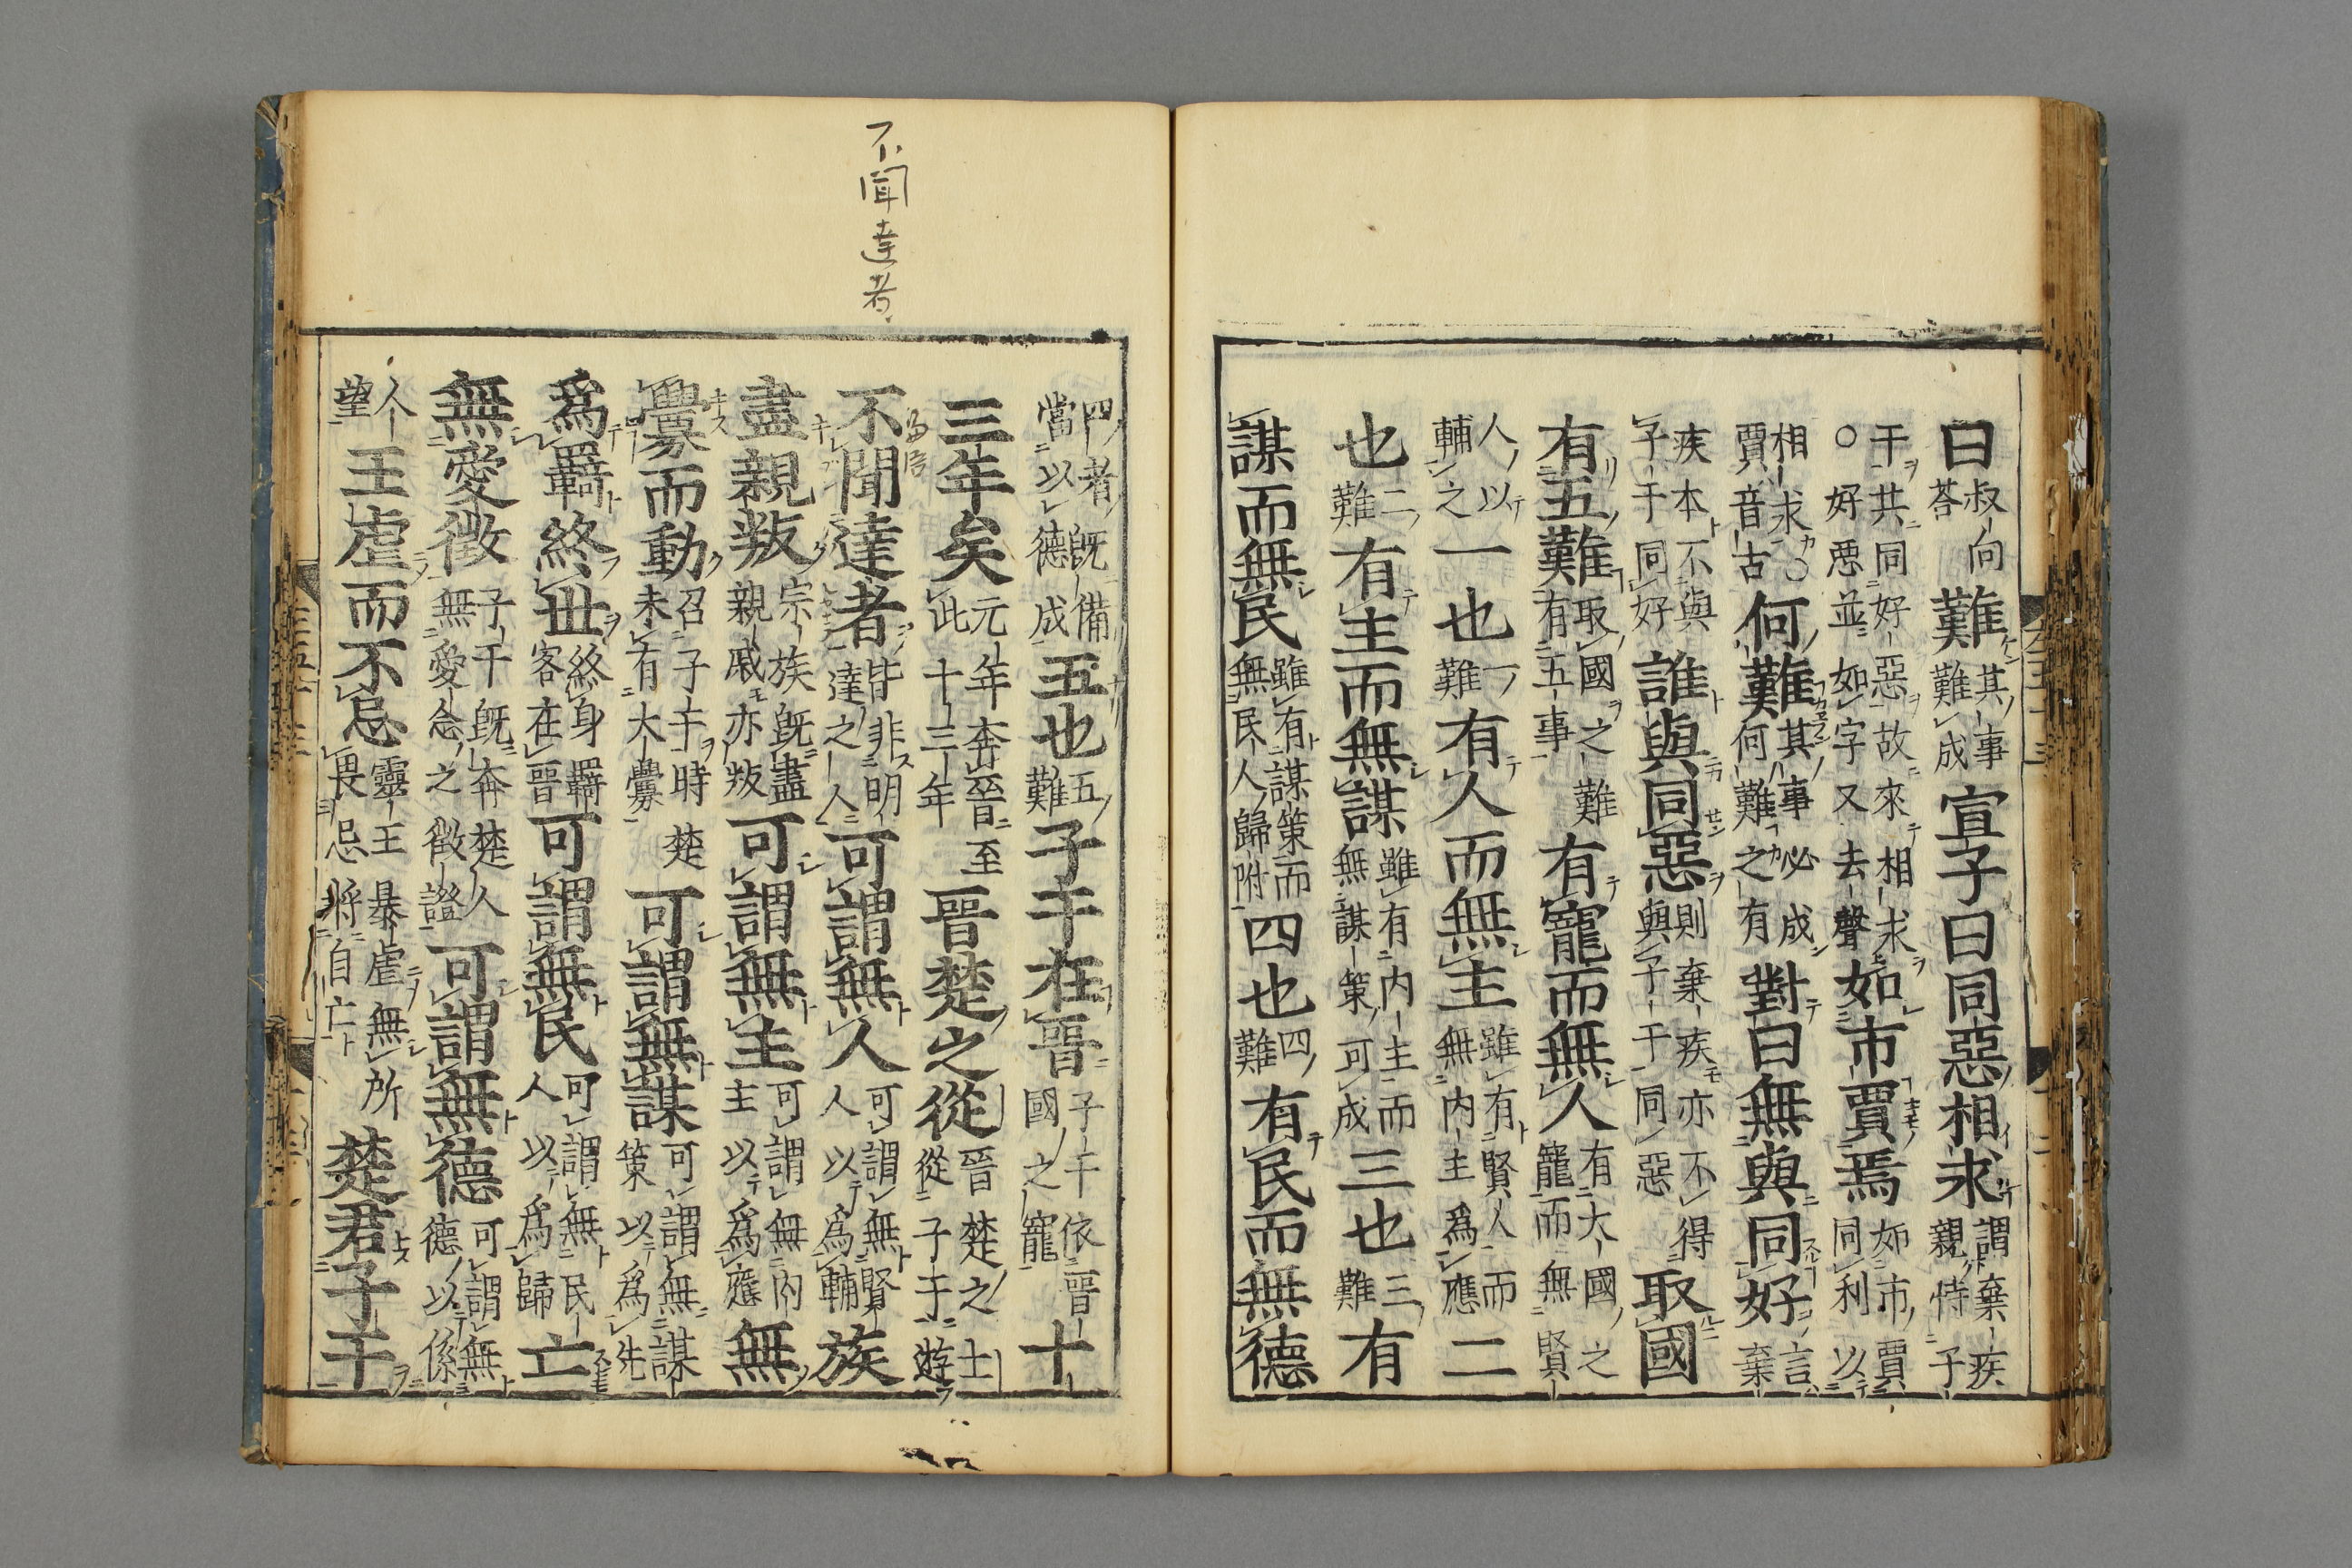 曰叔向荅難其事難成宣子曰同惡相求謂棄疾親恃子
干共同好惡故來相求○好惡並如字又去聲如市賈焉如市賈同利以
相求○賈音古何難其事必成何難之有對曰無與同好言棄
疾本不與子干同好誰與同惡則棄疾亦不得與子干同惡取國
有五難取國之難有五事有寵而無人有大國之寵而無賢
人以輔之一也一難有人而無主雖有賢人而無內主為應二
也二難有主而無謀雖有內主而無謀策可成三也三難有
謀而無民雖有謀策而無民人歸附四也四難有民而無德
四者既備當以德成五也五難子干在晉子干依晉國之寵十
三年矣元年奔晉至此十三年晉楚之從晉楚之士從子干遊
不聞達者皆非明達之人可謂無人可謂無賢人以為輔族
盡親叛宗族既盡親戚亦叛可謂無主可謂無內主以為應無
釁而動召子干時楚未有大釁可謂無謀可謂無謀策以為先
為羈終世終身羈客在晉可謂無民可謂無民人以為歸亡
無愛徵子干既奔楚人無愛念之徵徵證可謂無德可謂無德以係
人望王虐而不忌靈王暴虐無所畏忌將自亡楚君子干
不聞達者